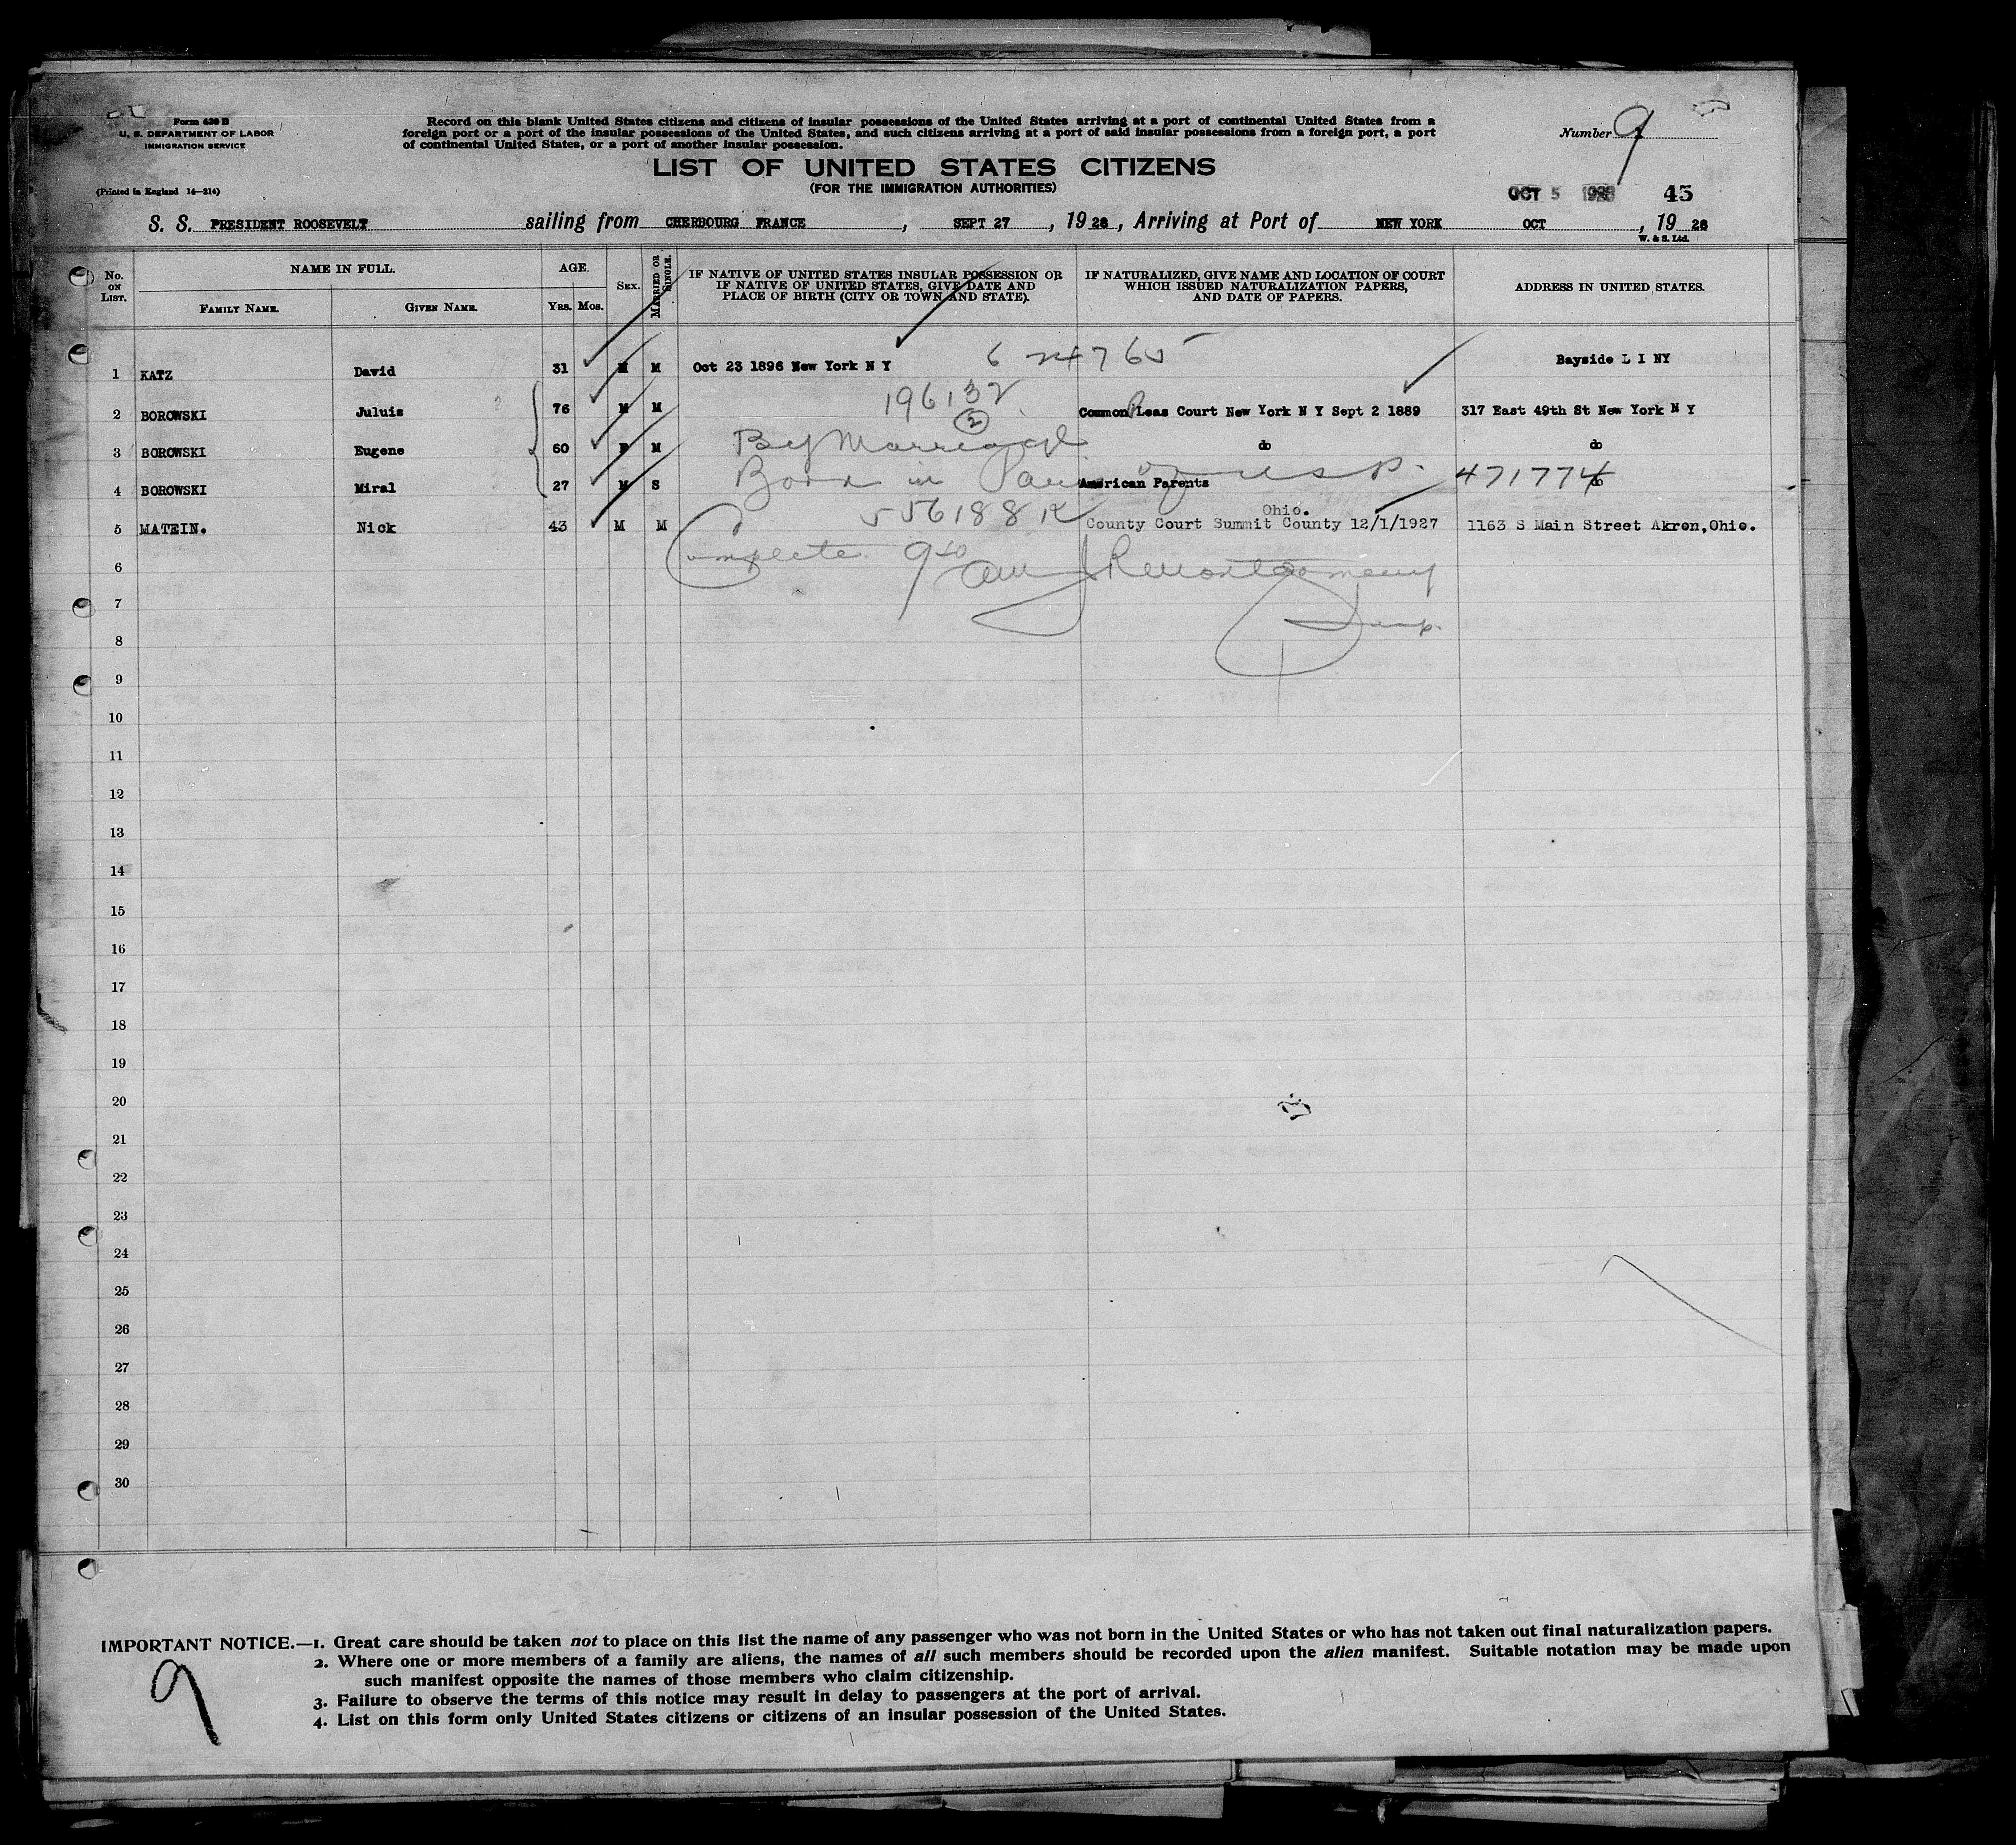 Form 630 B
U. S. DEPARTMENT OF LABOR
IMMIGRATION SERVICE
(Printed in England 14—214)
Record on this blank United States citizens and citizens of insular possessions of the United States arriving at a port of continental United States from a
foreign port or a port of the insular possessions of the United States, and such citizens arriving at a port of said insular possessions from a foreign port, a port
of continental United States, or a port of another insular possession.
Number 9
LIST OF UNITED STATES CITIZENS
(FOR THE IMMIGRATION AUTHORITIES)
OCT 5 1928 45
S. S. PRESIDENT ROOSEVELT sailing from CHERBOURG FRANCE, SEPT 27, 1928, Arriving at Port of NEW YORK OCT, 1928
W. & S. Ltd.
No. ON LIST. NAME IN FULL. AGE. SEX. MARRIED OR SINGLE. IF NATIVE OF UNITED STATES INSULAR POSSESSION OR IF NATIVE OF UNITED STATES, GIVE DATE AND PLACE OF BIRTH (CITY OR TOWN AND STATE). IF NATURALIZED, GIVE NAME AND LOCATION OF COURT WHICH ISSUED NATURALIZATION PAPERS, AND DATE OF PAPERS. ADDRESS IN UNITED STATES.
FAMILY NAME. GIVEN NAME. YRS. MOS.
1 KATZ David 31 M M Oct 23 1896 New York N Y Bayside L I NY
196132
2 BOROWSKI Juluis 76 M M Common Pleas Court New York N Y Sept 2 1889 317 East 49th St New York N Y
2
3 BOROWSKI Eugene 60 F M By Marriage do do
4 BOROWSKI Miral 27 M S Born in Paris of American Parents 471774 do
556188 Ohio.
5 MATEIN. Nick 43 M M County Court Summit County 12/1/1927 1163 S Main Street Akron,Ohio.
Complete 940 am J R Montgomery
6
Insp.
7
8
9
10
11
12
13
14
15
16
17
18
19
20
21
22
23
24
25
26
27
28
29
30
IMPORTANT NOTICE.—1. Great care should be taken not to place on this list the name of any passenger who was not born in the United States or who has not taken out final naturalization papers.
2. Where one or more members of a family are aliens, the names of all such members should be recorded upon the alien manifest. Suitable notation may be made upon
such manifest opposite the names of those members who claim citizenship.
3. Failure to observe the terms of this notice may result in delay to passengers at the port of arrival.
4. List on this form only United States citizens or citizens of an insular possession of the United States.
9